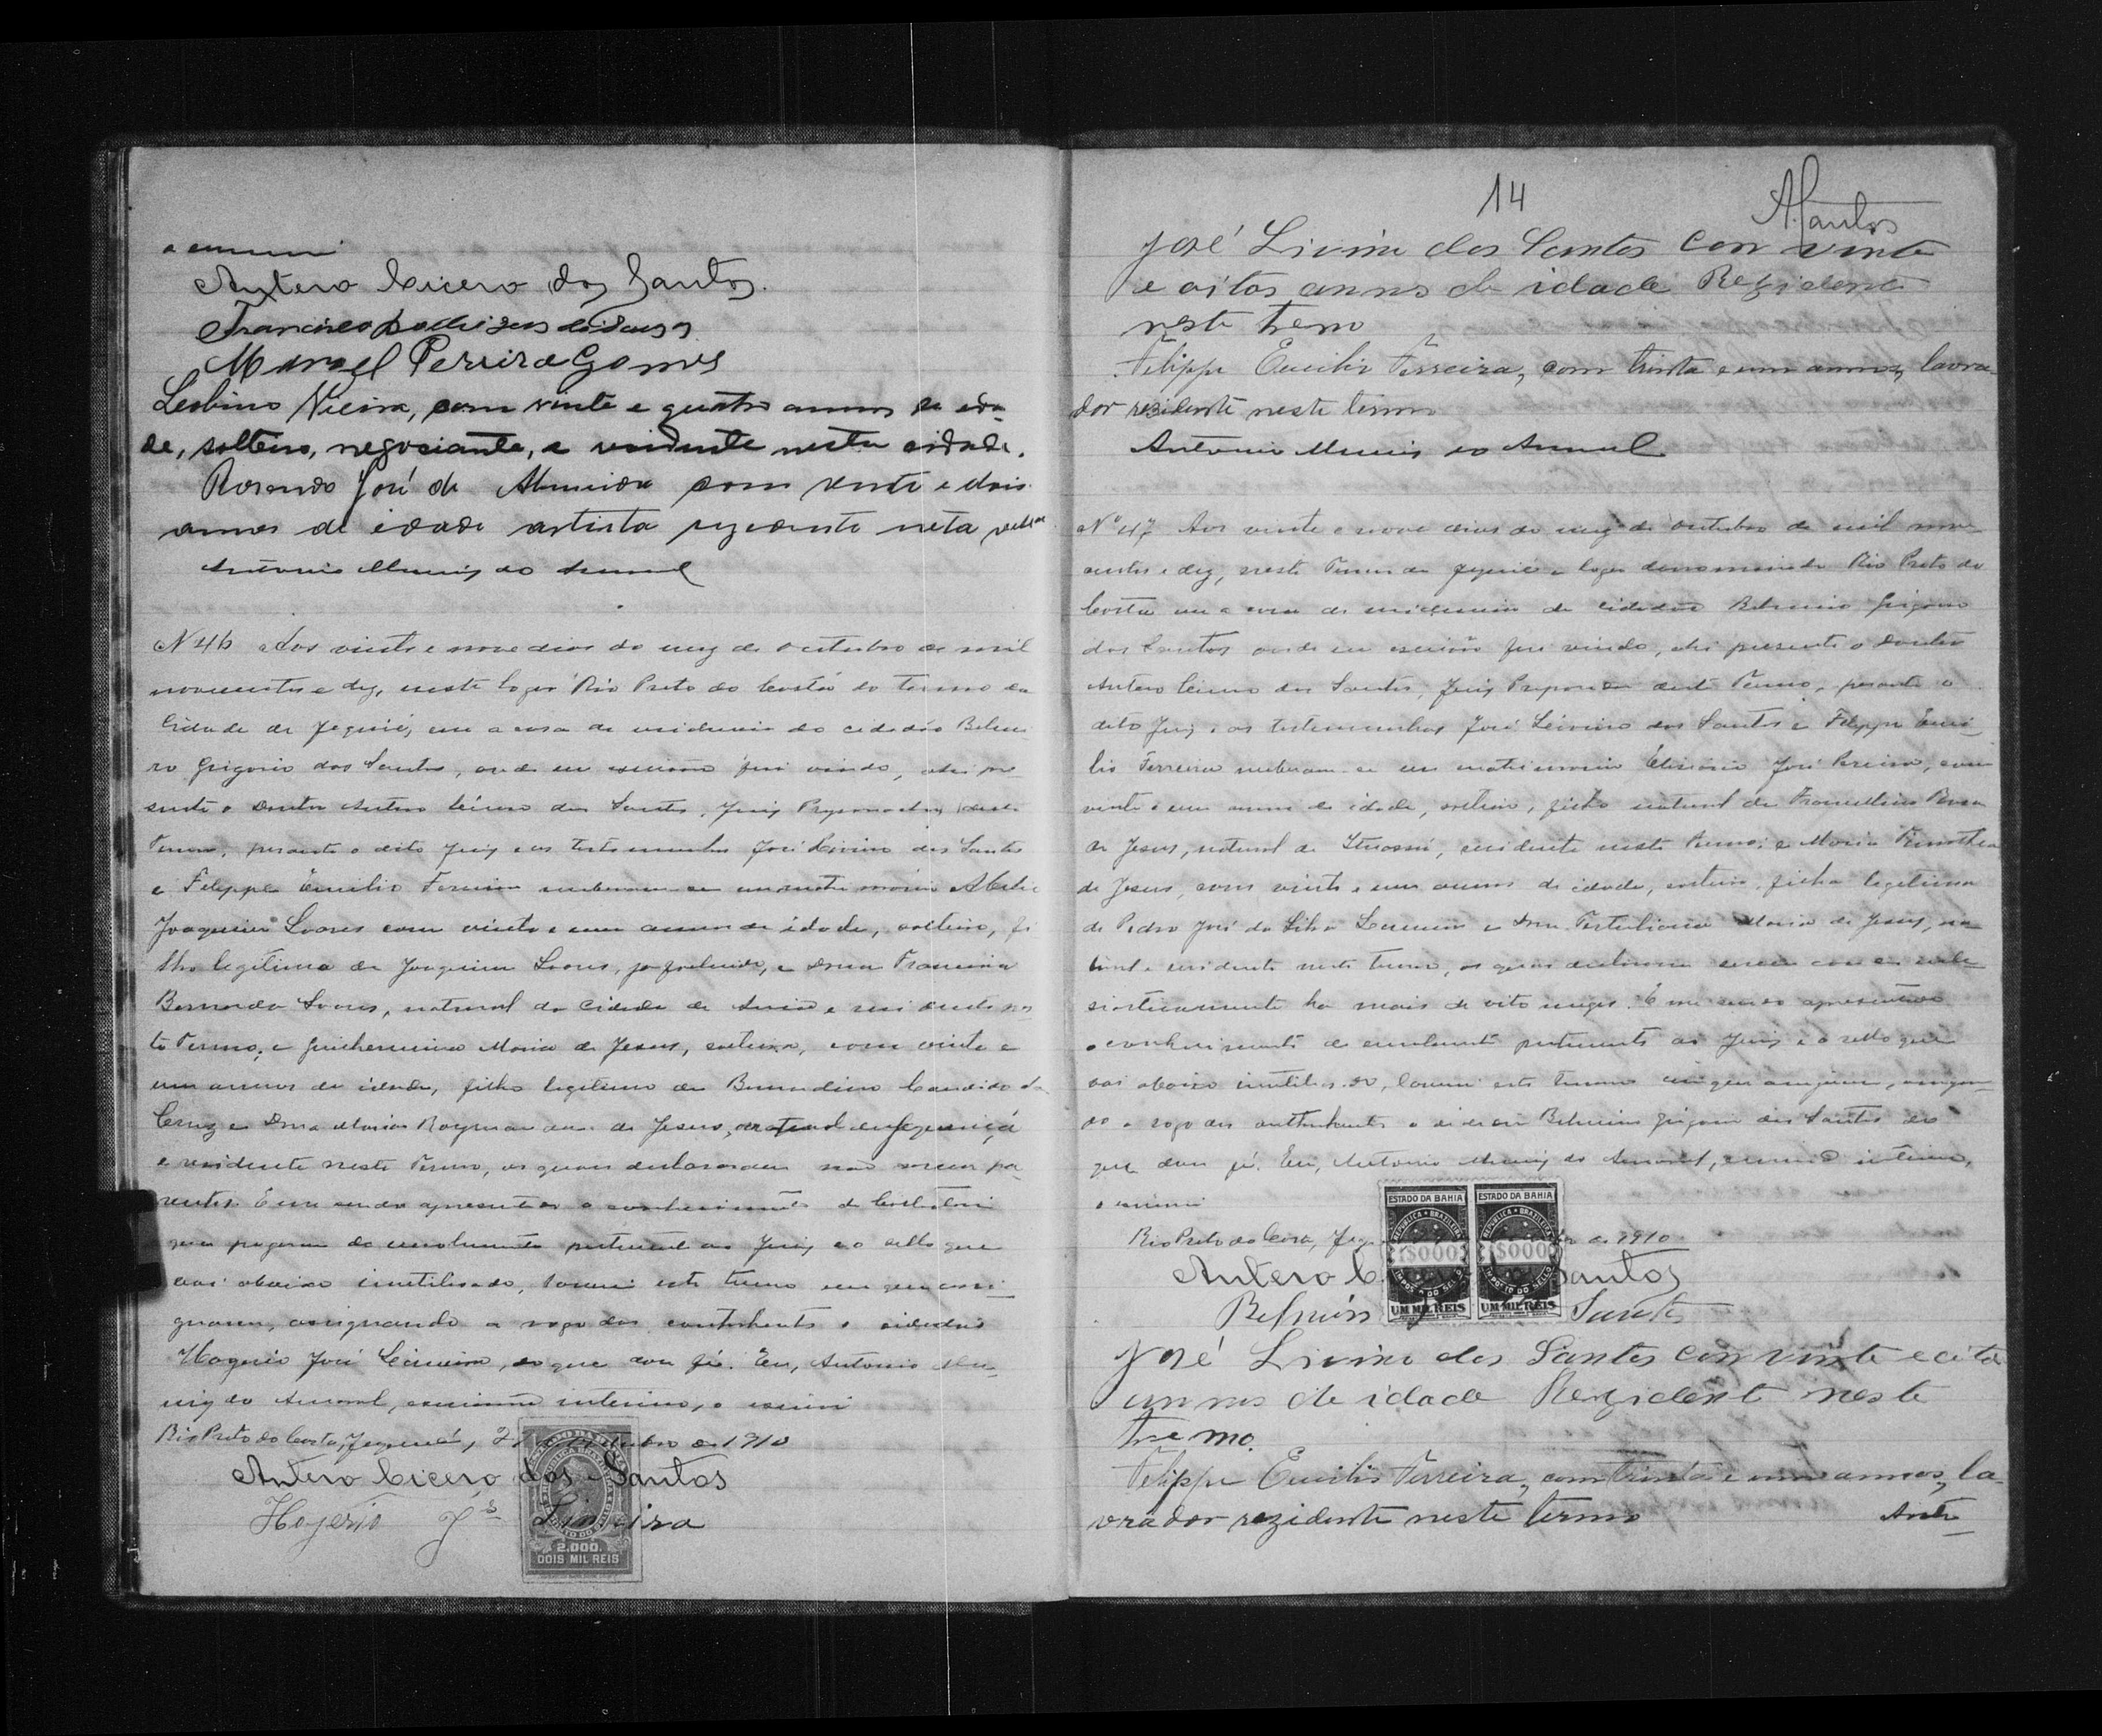 o escrevi
Antero Cicero dos Santos.
Francisco
Manoel Pereira Gomes
Leobino Vieira, com vinte e quatro annos de ida-
de, solteiro, negociante, e residente nesta cidade.
Rosendo José de Almeida com vinte e dois
annos de idade artista rezidente neta
Antonio Muniz do Amaral
Nº 46 Aos vinte e nove dias do mez de outubro de mil
novecentos e dez, neste logar Rio Preto do Costa do termo da
Cidade de Jequié, em a casa de residencia do cidadão Belmi-
ro Grigorio dos Santos, onde eu escrivão fui vindo, ahi pre
sente o Doutor Antero Cicero dos Santos, Juiz Preparador deste
Termo, perante o dito Juiz e as testemunhas José Livino dos Santos
e Felippe Emilio Ferreira receberam-se em matrimonio Abilio
Joaquim Soares com vinte e um annos de idade, solteiro, fi
lho legitimo de Joaquim Soares, ja fallecido, e Dona Francisca
Bernarda Soares, natural da Cidade de Areia e residente nes
te Termo; e Guilhermina Maria de Jesus, solteira, com vinte e
um annos de idade, filha legitima de Bernardino Candido da
Cruz e Dona Maria Raymunda de Jesus, natural de Jequiriçá
e residente neste Termo, os quaes declararam não serem pa-
rentes. E me sendo apresentado o conhecimento da Collectoria
que pagaram do emolumento pertencente ao Juiz e o sello que
vai abaixo inutilisado, lavrei este termo em que assi-
gnaram, assignando a rogo dos contrahentes o cidadão
Hogerio José Limeira, do que dou fé. Eu, Antonio Mu-
niz do Amaral, escrivão interino, o escrevi
Rio Preto do Costa, Jequié, 29 de Outubro de 1910
Antero Cicero dos Santos
Hogerio Jé Limeira
2.000.
DOIS MIL REIS
14
ASantos
José Livino dos Santos con vinte
e oitos annos de idade Rezidente
neste tremo
Felippe Emilio Ferreira, com trinta e um annos, lavra-
dor rezidente neste termo
Antonio Muniz do Amaral
Nº 47 Aos vinte e nove dias do mez de outubro de mil nove
centos e dez, neste Termo de Jequié e logar denominado Rio Preto do
Costa em a casa de residencia do cidadão Belmiro Grigorio
dos Santos onde eu escrivão fui vindo, ahi presente o Doutor
Antero Cicero dos Santos, Juiz Preparador deste Termo, perante o
dito Juiz e as testemunhas José Livino dos Santos e Felippe Emi-
lio Ferreira receberam-se em matrimonio José Pereira, com
vinte e um annos de idade, solteiro, filho natural de
de Jesus, natural de Ituassú, residente neste Termo; e Maria Timothea
de Jesus, com vinte e um annos de idade, solteira, filha legitima
de Pedro José da Silva e Dona Tertuliana Maria de Jesus, na-
tural e residente neste termo, os quaes declararam serem casados eccle-
siasticamente ha mais de oito mezes. E me sendo apresentado
o conhecimento do emolumento pertencente ao Juiz e o sello que
vai abaixo inutilisado, lavrei este termo em que assignaram, assignan-
do a rogo dos contrahentes o cidadão Belmiro Grigorio dos Santos do
que dou fé. Eu, Antonio Muniz do Amaral, escrivão interino,
o escrevi
Rio Preto do Costa, de 1910
Antero Santos
Belmiro Santos
ESTADO DA BAHIA
REPUBLICA BRAZILEIRA
1$000
IMPOSTO DO SELLO
UM MIL REIS
ESTADO DA BAHIA
REPUBLICA BRAZILEIRA
1$000
IMPOSTO DO SELLO
UM MIL REIS
José Livino dos Santos con vinte e oito
annos de idade Rezident neste
tremo.
Felippe Emilio Ferreira, com trinta e um annos, la-
vrador rezidente neste termo
Anto